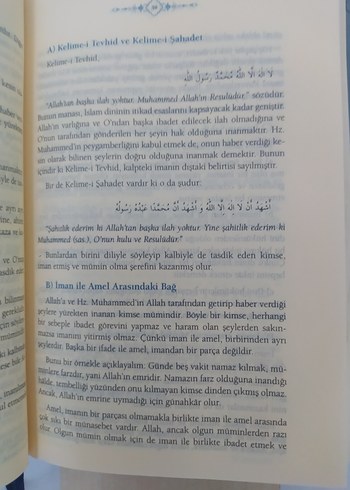 A) Kelime-i Tevhid ve Kelime-i Şahadet
Kelime-i Tevhid,
لَا اِلٰهَ اِلَّا اللّٰهُ مُحَمَّدٌ رَسُولُ اللّٰهِ
"Allah'tan başka ilah yoktur. Muhammed Allah'ın Resulüdür." sözüdür.
Bunun manası, İslam dininin itikad esaslarını kapsayacak kadar geniştir.
Allah'ın varlığına ve O'ndan başka ibadet edilecek ilah olmadığına ve
O'nun tarafından gönderilen her şeyin hak olduğuna inanmaktır. Hz.
Muhammed'in peygamberliğini kabul etmek de, onun haber verdiği ke-
sin olarak bilinen şeylerin doğru olduğuna inanmak demektir. Bunun
içindir ki Kelime-i Tevhid, kalpteki imanın dıştaki belirtisi sayılmıştır.
Bir de Kelime-i Şahadet vardır ki o da şudur:
اَشْهَدُ اَنْ لَا اِلٰهَ اِلَّا اللّٰهُ وَ اَشْهَدُ اَنَّ مُحَمَّدًا عَبْدُهُ وَرَسُولُهُ
"Şahadet ederim ki Allah'tan başka ilah yoktur. Yine şahitlik ederim ki
Muhammed (sas), O'nun kulu ve Resulüdür."
Bunlardan birini diliyle söyleyip kalbiyle de tasdik eden kimse,
iman etmiş ve mümin olma şerefini kazanmış olur.
B) İman ile Amel Arasındaki Bağ
Allah'a ve Hz. Muhammed'in Allah tarafından getirip haber verdiği
şeylere yürekten inanan kimse mümindir. Böyle bir kimse, herhangi
bir sebeple ibadet görevini yapmaz ve haram olan şeylerden sakın-
mazsa imanını yitirmiş olmaz. Çünkü iman ile amel, birbirinden ayrı
şeylerdir. Başka bir ifade ile amel, imandan bir parça değildir.
Bunu bir örnekle açıklayalım: Günde beş vakit namaz kılmak, mü-
minlere farzdır, yani Allah'ın emridir. Namazın farz olduğuna inandığı
halde, tembelliği yüzünden onu kılmayan kimse dinden çıkmış olmaz.
Ancak, Allah'ın emrine uymadığı için günahkâr olur.
Amel, imanın bir parçası olmamakla birlikte iman ile amel arasında
çok sıkı bir münasebet vardır. Allah, ancak olgun müminlerden razı
olur. Olgun mümin olmak için de iman ile birlikte ibadet etmek ve